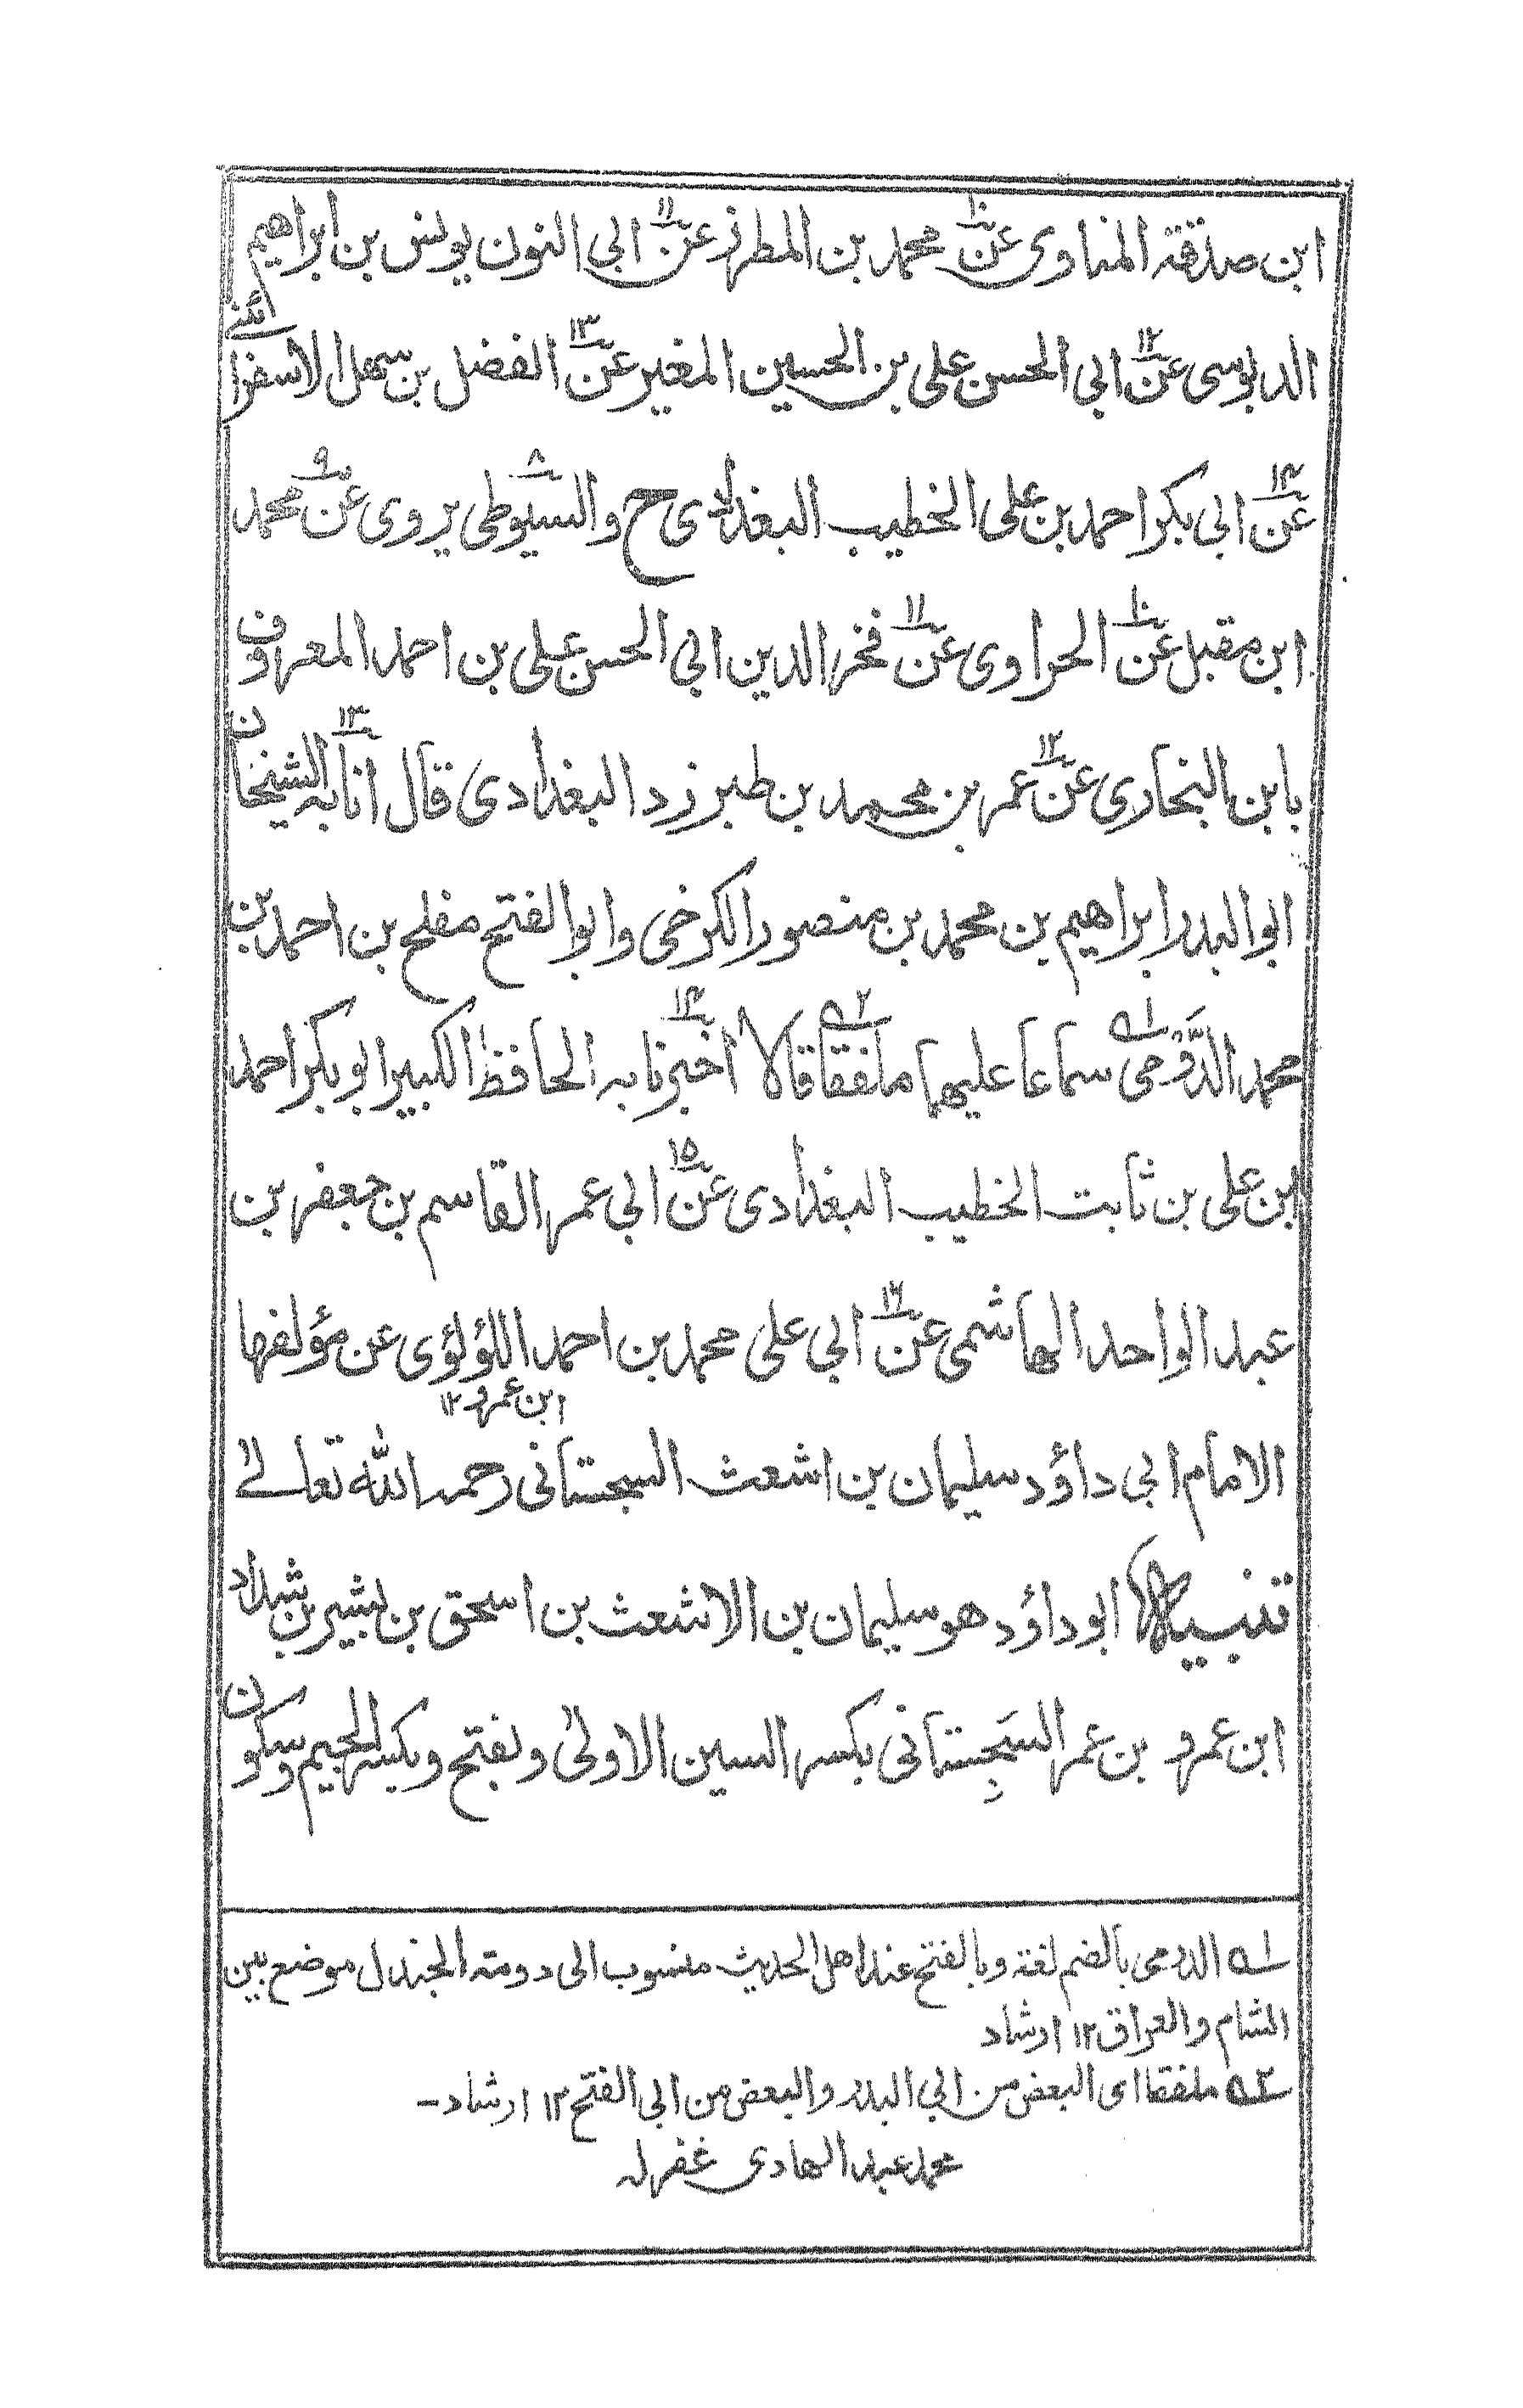 ابن صدقة المناوى عن١٠ محمد بن المطرز عن١١ ابي النون يونس بن ابراهيم
الدبوسى عن١٢ ابى الحسن على بن الحسين المغير عن١٣ الفضل بن سهل الاسفرائنے
عن١٤ ابى بكر احمد بن على الخطيب البغدادى ح والسيوطى٨ يروى عن٩ محمد
ابن مقبل عن١٠ الحراوى عن١١ فخر الدين ابى الحسن على بن احمد المعروف
بابن البخارى عن١٢ عمر بن محمد بن طبرزد البغدادى قال انا١٣ به الشيخان
ابو البدر ابراهيم بن محمد بن منصور الكرخى وابو الفتح مفلح بن احمد بن
محمد الدَّوْمى١ سماعا عليهما ملفقا٢ قالا اخبرنا١٤ به الحافظ الكبير ابو بكر احمد
ابن على بن ثابت الخطيب البغدادى عن١٥ ابى عمر القاسم بن جعفر بن
عبد الواحد الهاشمى عن١٦ ابى على محمد بن احمد اللؤلؤى عن مؤلفها
ابن عمرو ١٢
الامام ابى داؤد سليمان بن اشعث السجستانى رحمه الله تعالےٰ
تنبيه ابو داؤد هو سليمان بن الاشعث بن اسحق بن بشير بن شداد
ابن عمرو بن عمر السَجِستانى بكسر السين الاولىٰ وبفتح وبكسر الجيم وسكون
ـ١ـه الدومى بالضم لغة وبالفتح عند اهل الحديث منسوب الى دومة الجندل موضع بين
الشام والعراق ١٢ ارشاد
ـ٢ـه ملفقا اى البعض من ابى البدر والبعض من ابى الفتح ١٢ ارشاد-
محمد عبد الهادى غفر له